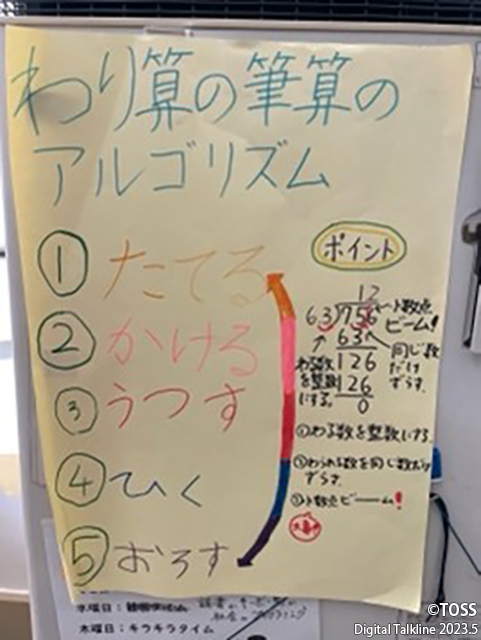 わり算の筆算の
アルゴリズム
① たてる
② かける
③ うつす
④ ひく
⑤ おろす
ポイント
12
6.3)75.6
63
126
126
0
小数点
ビーム!
同じ数
だけ
ずらす。
わる数
を整数
にする。
①わる数を整数にする。
②わられる数を同じ数だけ
ずらす。
③小数点ビーーム!
水曜日:
木曜日:キラキラタイム
©TOSS
Digital Talkline 2023.5